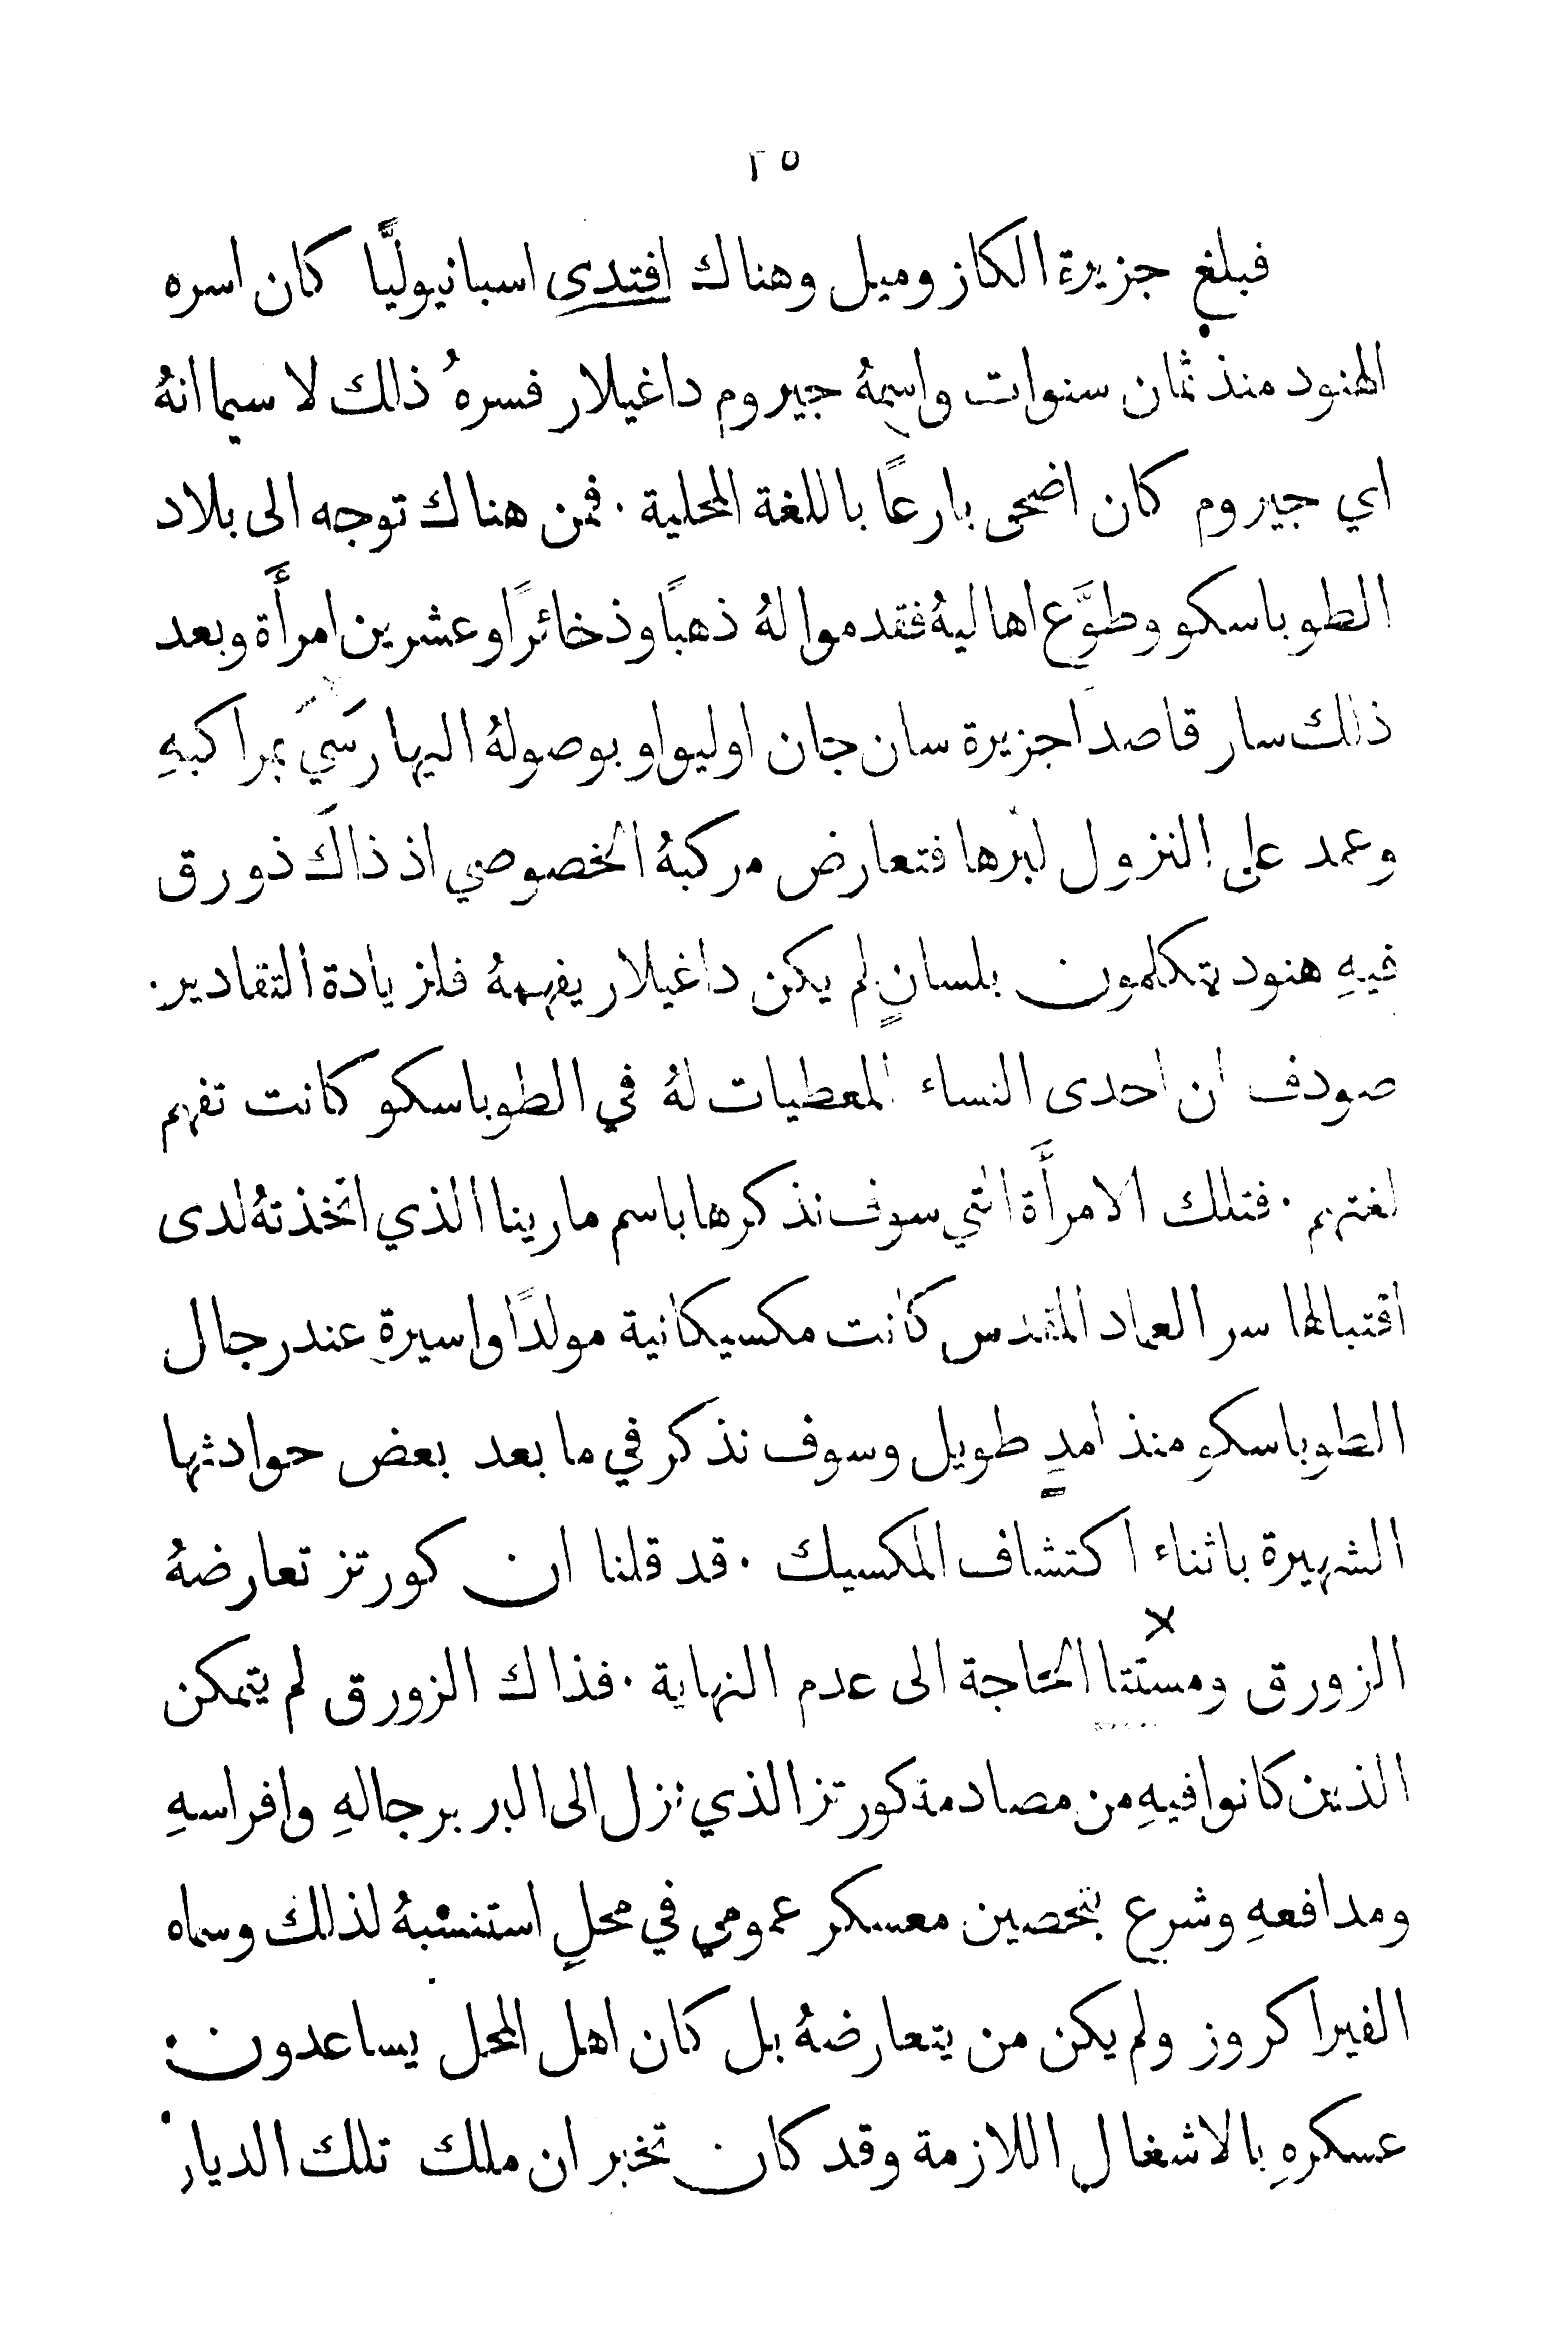 ٢٥
فبلغ جزيرة الكازوميل وهناك افتدى اسبانيوليًّا كان اسره
الهنود منذ ثمان سنوات واسمهُ جيروم داغيلار فسرهُ ذلك لا سيما انهُ
اي جيروم كان اضحى بارعًا باللغة المحلية · فمن هناك توجه الى بلاد
الطوباسكو وطوَّع اهاليهُ فقدموا لهُ ذهبًا وذخائرًا وعشرين امرأَة وبعد
ذلك سار قاصدا جزيرة سان جان اوليواو بوصولهُ اليها رَسَيَ بمراكبهِ
وعمد على النزول لبرها فتعارض مركبهُ الخصوصي اذ ذاكَ ذورق
فيهِ هنود يتكلمون بلسانٍ لم يكن داغيلار يفهمهُ فلزيادة التقادير ·
صودف ان احدى النساء المعطيات لهُ في الطوباسكو كانت تفهم
لغتهم · فتلك الامرأَة التي سوف نذكرها باسم مارينا الذي اتخذتهُ لدى
اقتبالها سر العماد المقدس كانت مكسيكانية مولدًا واسيرة عند رجال
الطوباسكو منذ امدٍ طويل وسوف نذكر في ما بعد بعض حوادثها
الشهيرة باثناء اكتشاف المكسيك · قد قلنا ان كورتز تعارضهُ
الزورق ومستتا الحاجة الى عدم النهاية · فذاك الزورق لم يتمكن
الذين كانوا فيهِ من مصادمة كورتز الذي نزل الى البر برجالهِ وافراسهِ
ومدافعهِ وشرع بتحصين معسكر عمومي في محلٍ استنسبهُ لذلك وسماه
الفيرا كروز ولم يكن من يتعارضهُ بل كان اهل المحل يساعدون ·
عسكرهِ بالاشغال اللازمة وقد كان تخبر ان ملك تلك الديار